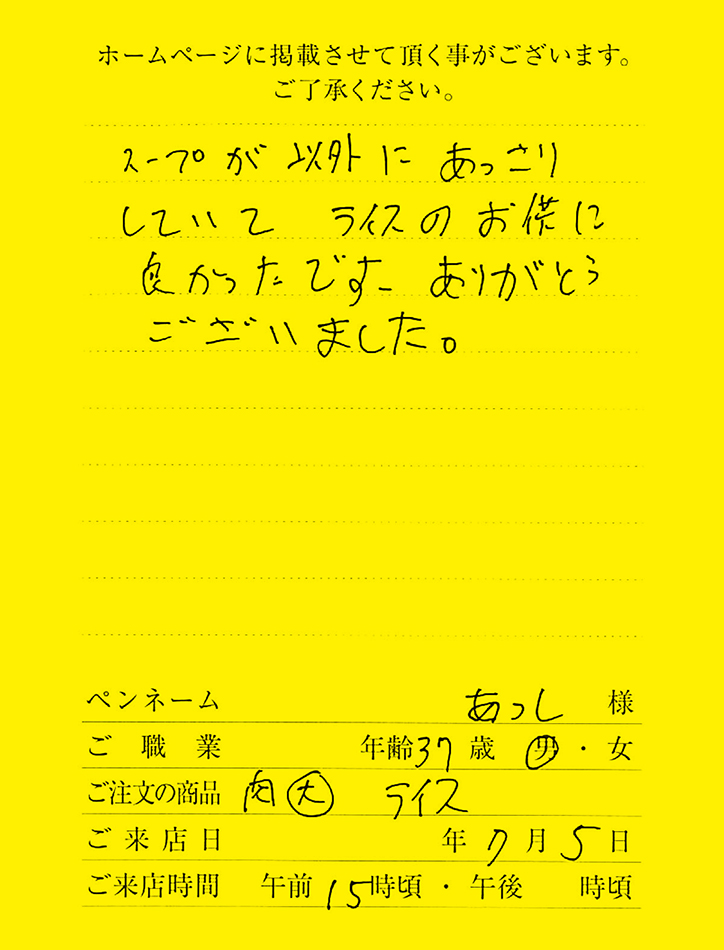 ホームページに掲載させて頂く事がございます。
ご了承ください。
スープが 以外に あっさり
していて ライスのお供に
良かったです_ ありがとう
ございました。
ペンネーム あっし 様
ご職業 年齢37歳 男・女
ご注文の商品 肉大 ライス
ご来店日 年7月5日
ご来店時間 午前15時頃・午後 時頃